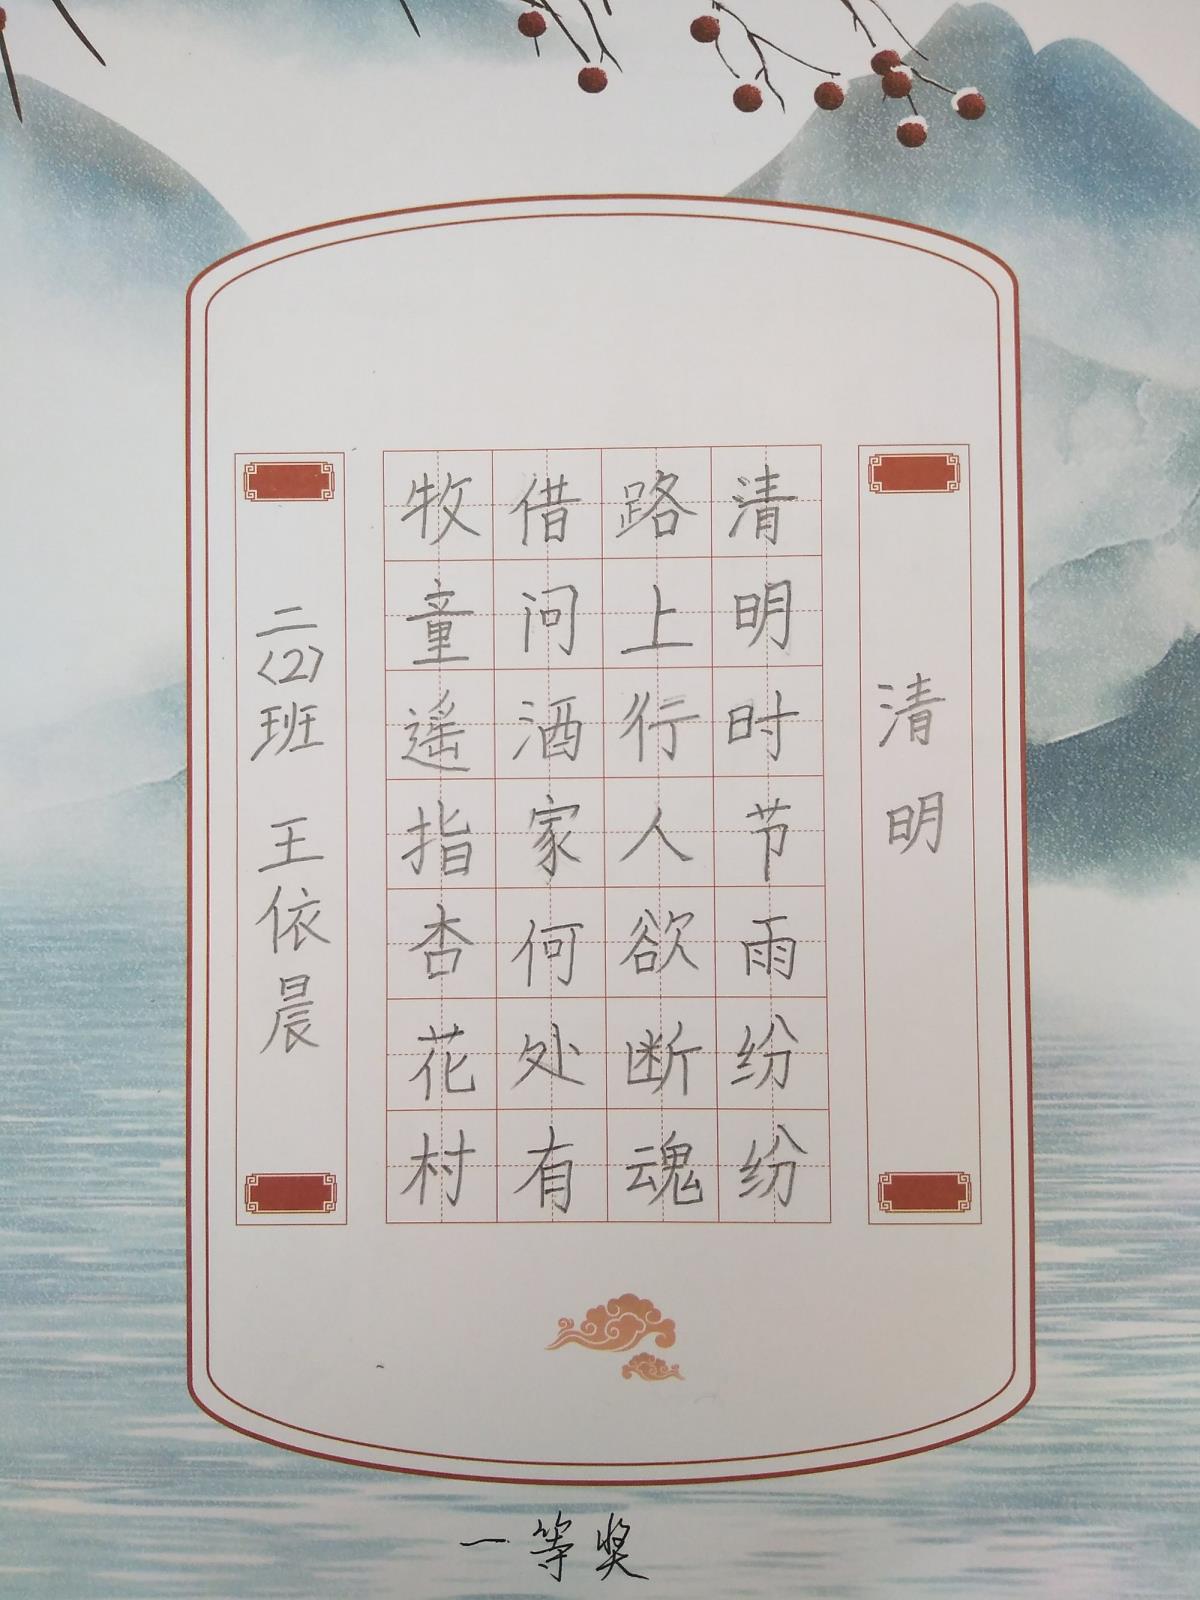 清明
清明时节雨纷纷
路上行人欲断魂
借问酒家何处有
牧童遥指杏花村
二(2)班 王依晨
一等奖